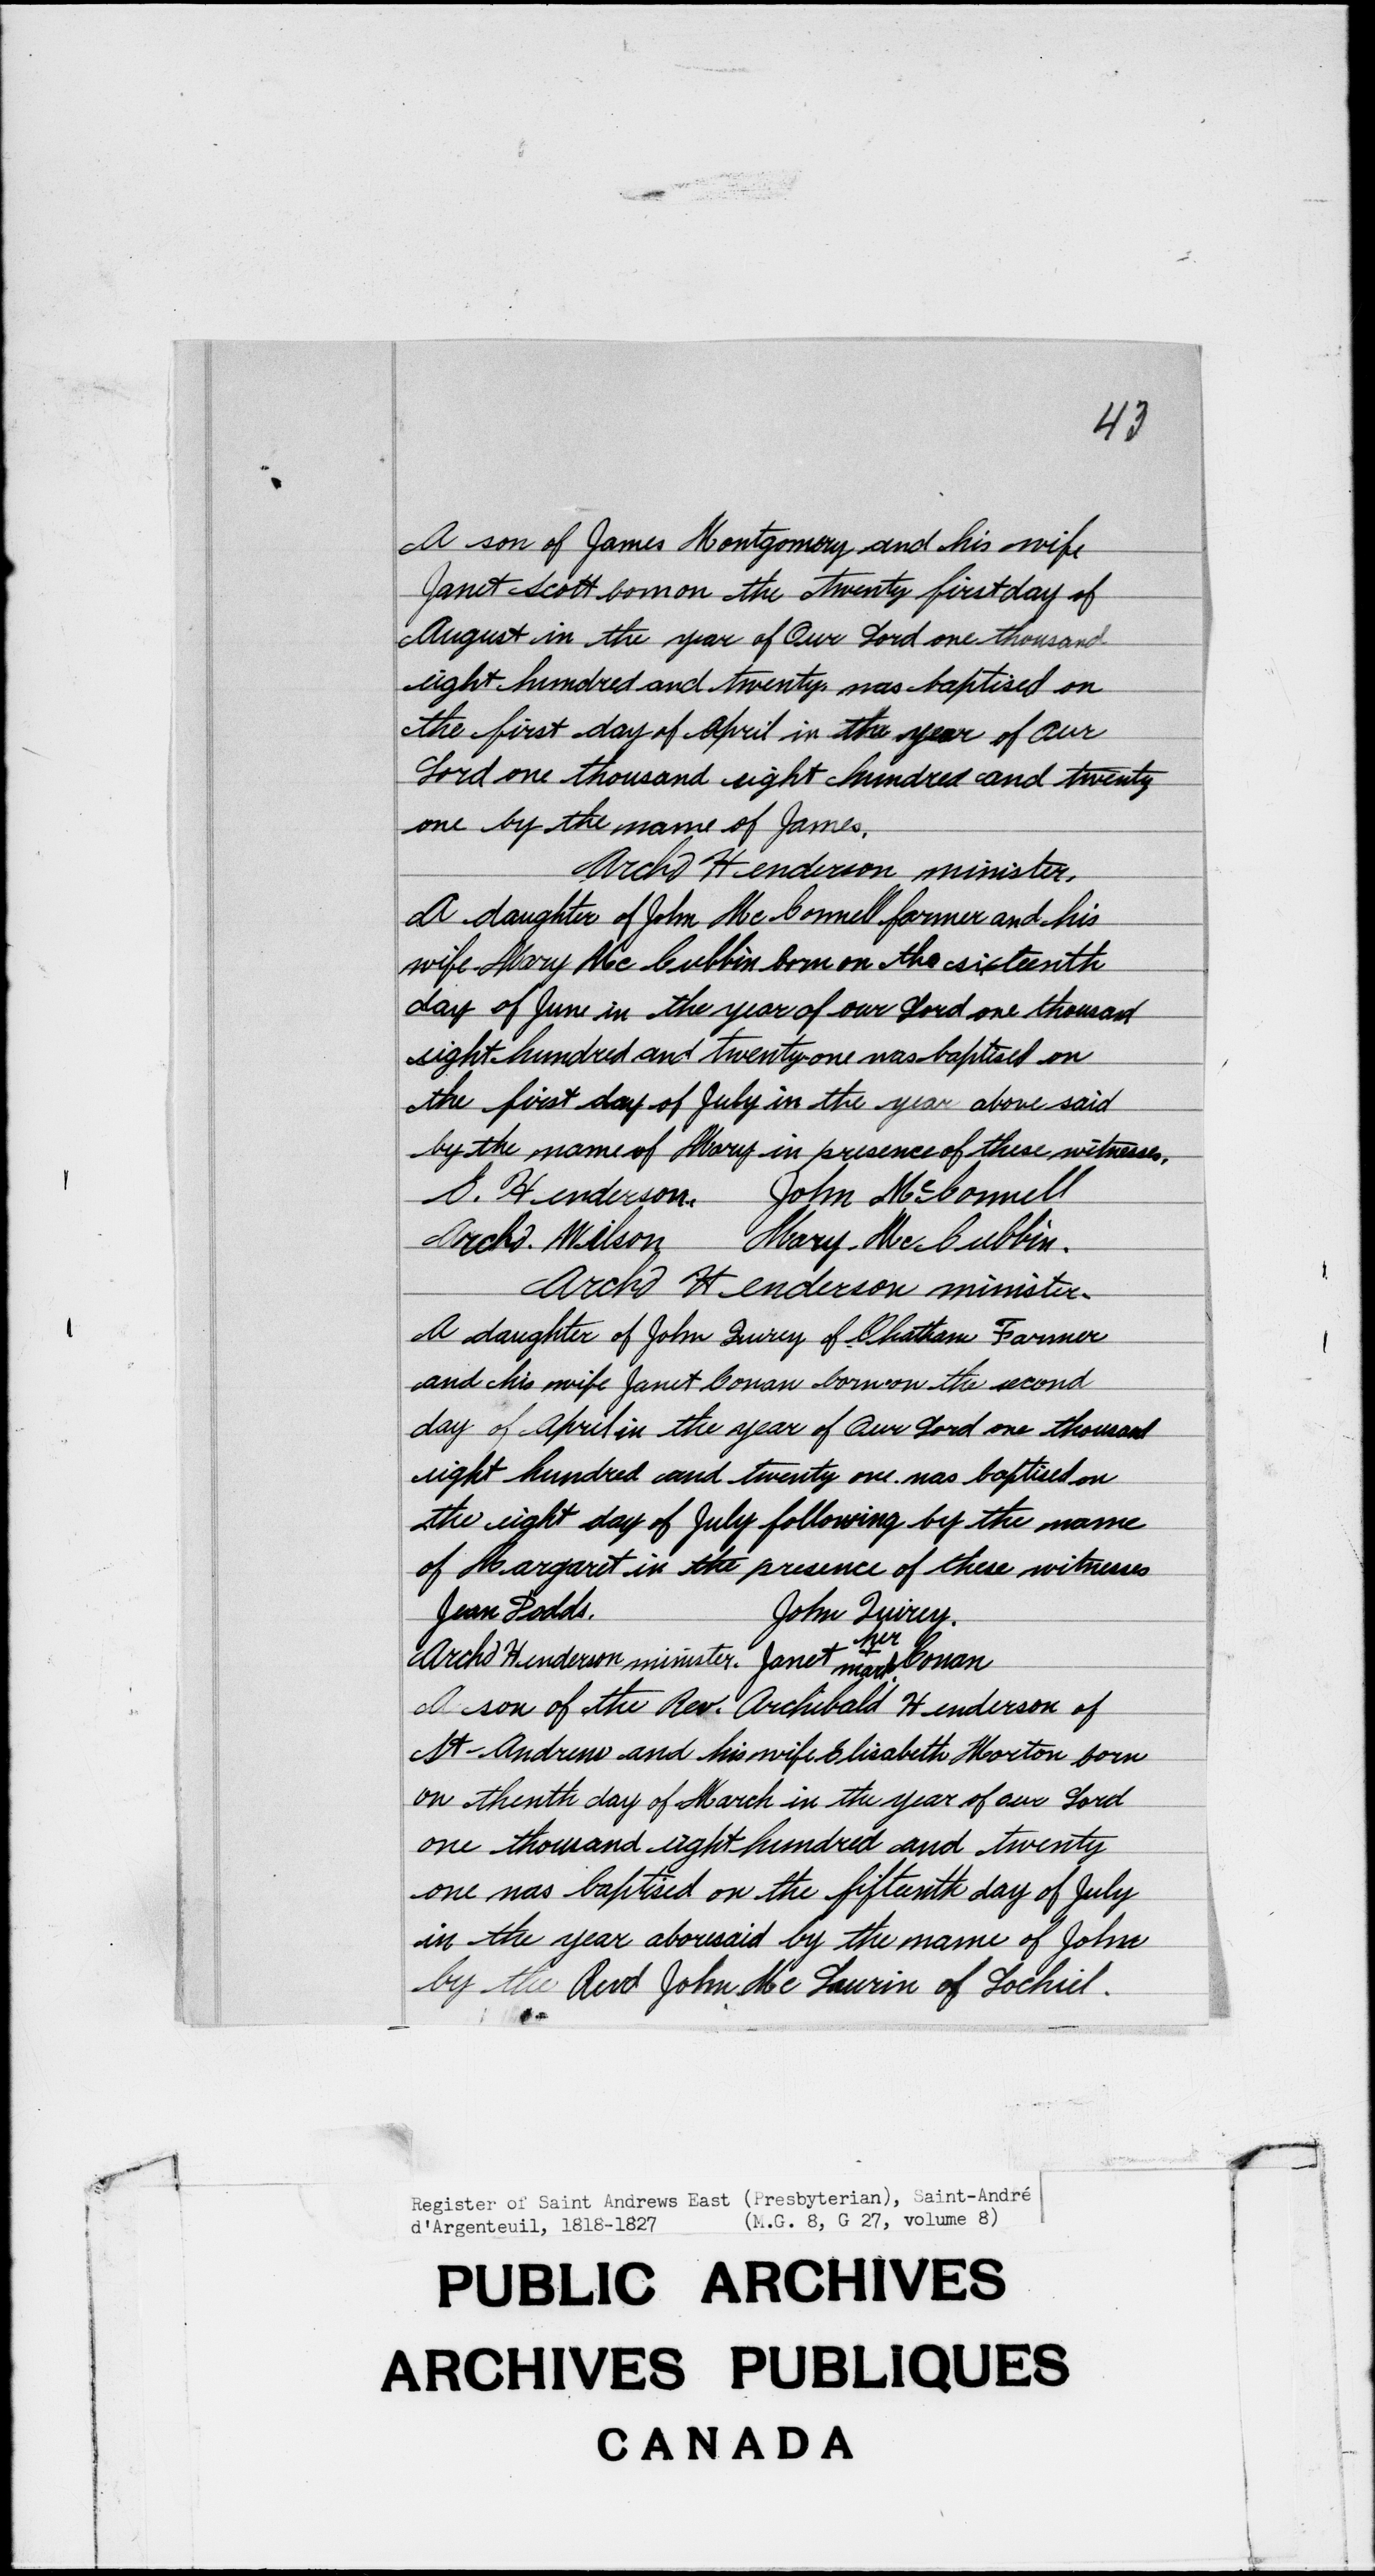 43
A son of James Montgomery and his wife
Janet Scott born on the twenty first day of
August in the year of Our Lord one thousand
eight hundred and twenty was baptised on
the first day of April in the year of Our
Lord one thousand eight hundred and twenty
one by the name of James.
Archd Henderson minister.
A daughter of John Mc Connell farmer and his
wife Mary Mc Cubbin born on the sixteenth
day of June in the year of our Lord one thousand
eight hundred and twenty-one was baptised on
the first day of July in the year above said
by the name of Mary in presence of these witnesses.
E. Henderson. John McConnell
Archd. Wilson Mary Mc Cubbin.
Archd Henderson minister.
A daughter of John Quirey of Chatham Farmer
and his wife Janet Conan born on the second
day of April in the year of Our Lord one thousand
eight hundred and twenty one was baptised on
the eight day of July following by the name
of Margaret in the presence of these witnesses
Jean Dodds. John Quirey.
her
Archd Henderson minister. Janet + Conan
mark
A son of the Rev. Archibald Henderson of
St Andrew and his wife Elisabeth Morton born
on thenth day of March in the year of our Lord
one thousand eight hundred and twenty
one was baptised on the fifteenth day of July
in the year aboresaid by the name of John
by the Revd John Mc Laurin of Lochiel.
Register of Saint Andrews East (Presbyterian), Saint-André
d'Argenteuil, 1818-1827 (M.G. 8, G 27, volume 8)
PUBLIC ARCHIVES
ARCHIVES PUBLIQUES
CANADA